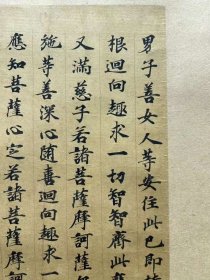 男子善女人等安住此已即能
根迴向趣求一切智智齊此應
又滿慈子若諸菩薩摩訶薩
施等善深心隨喜迴向趣求一
應知菩薩心定若諸菩薩摩訶